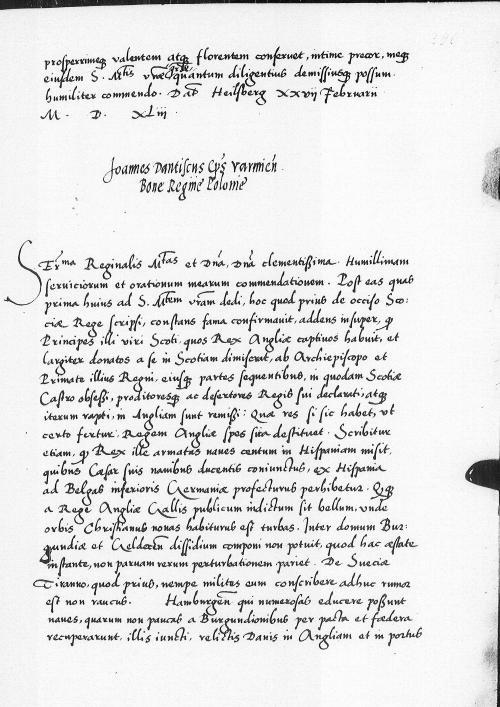 prosperrimeque valentem atque florentem conservet, intime precor, meque
eiusdem S. Mtis quantum diligentius demissiusque possum
humiliter commendo. Dat Heilsberg XXvij Februarii
M. D. XLiij.
Joannes Dantiscus Eps Varmien
Bone Regine Polonie
SErma Reginalis Mtas et Dna, Dna clementissima. Humillimam
serviciorum et orationum mearum commendationem. Post eas quas
prima huius ad S. Mtem vram dedi, hoc quod prius de occiso Sco:
ciæ Rege scripsi, constans fama confirmavit, addens insuper, q
Principes illi viri Scoti, quos Rex Angliæ captivos habuit, et
largiter donatos a se in Scotiam dimiserat, ab Archiepiscopo et
Primate illius Regni, eiusque partes sequentibus, in quodam Scotiæ
Castro obsessi, proditoresque ac desertores Regis sui declarati, atque
iterum rapti, in Angliam sunt remissi: Quæ res si sic habet, ut
certo fertur, Regem Angliæ spes sua destituet. Scribitur
etiam, q Rex ille armatas naves centum in Hispaniam misit,
quibus Cæsar suis navibus ducentis coniunctus, ex Hispania
ad Belgas inferioris Germaniæ profecturus perhibetur. Qq
a Rege Angliæ Gallis publicum indictum sit bellum, unde
orbis Christianus novas habiturus est turbas. Inter domum Bur:
gundiæ et Geldren dissidium componi non potuit, quod hac æstate
instante, non parvam rerum perturbationem pariet. De Sueciæ
Tiranno, quod prius, nempe milites eum conscribere adhuc rumor
est non raucus. Hamburgen qui numerosas educere possunt
naves, quarum non paucas a Burgundionibus per pacta et fœdera
recuperarunt, illis iuncti, relictis Danis in Angliam et in portus